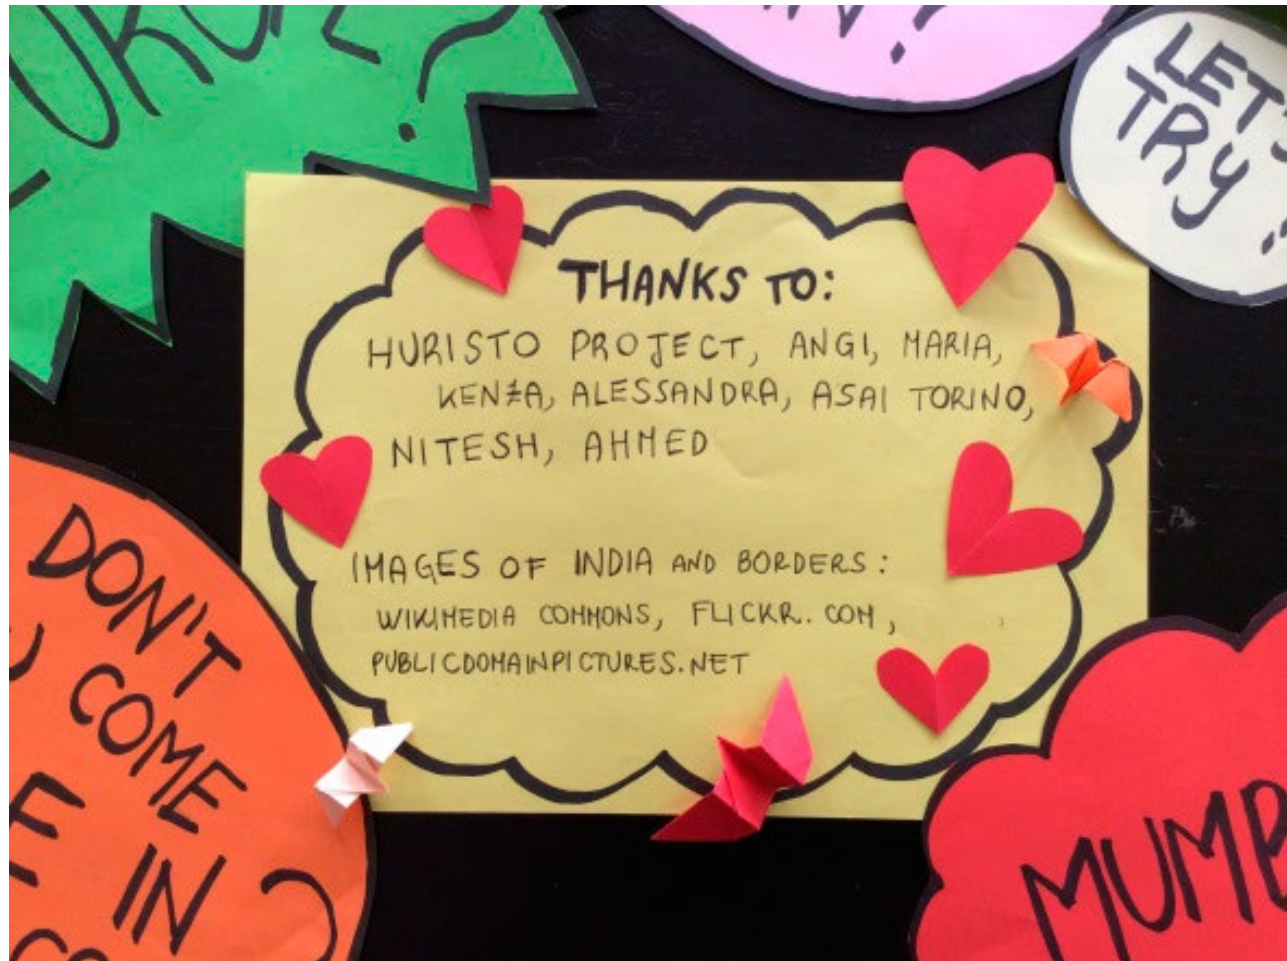 LET'S
TRY
THANKS TO:
HURISTO PROJECT, ANGI, MARIA,
KENZA, ALESSANDRA, ASAI TORINO,
NITESH, AHMED
IMAGES OF INDIA AND BORDERS:
WIKIMEDIA COMMONS, FLICKR.COM,
PUBLICDOMAINPICTURES.NET
DON'T
COME
IN